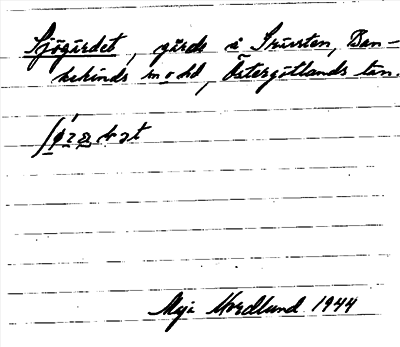 Sjögärdet, gärde i Srirsten, Ban-
kekinds sn o hd, Östergötlands län.
Maja Nordlund 1944